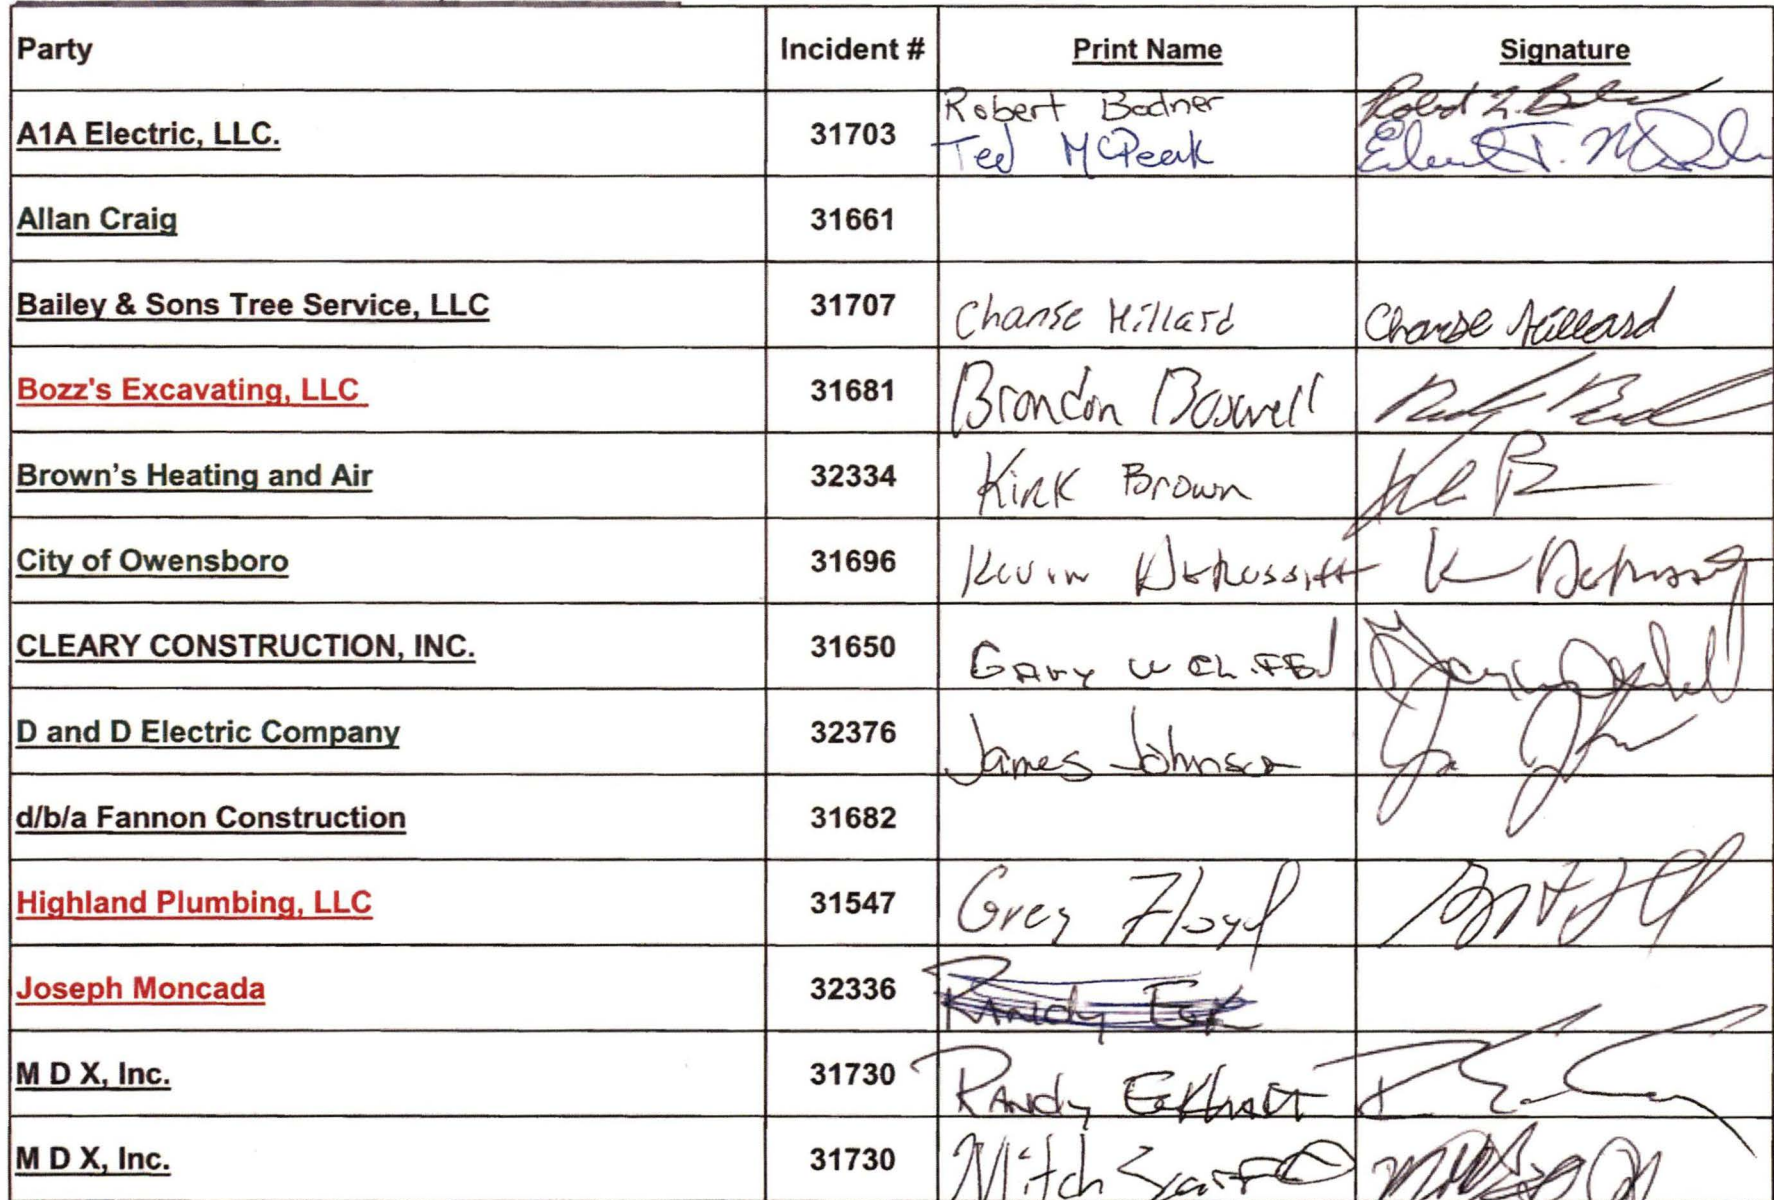 Party Incident # Print Name Signature
Robert Bodner
A1A Electric, LLC. 31703 Ted McPeak
Allan Craig 31661
Bailey & Sons Tree Service, LLC 31707 Chanse Hillard Chanse Hillard
Bozz's Excavating, LLC 31681 Brandon Boswell
Brown's Heating and Air 32334 Kirk Brown
City of Owensboro 31696 Kevin
CLEARY CONSTRUCTION, INC. 31650 Gary W
D and D Electric Company 32376 James Johnson
d/b/a Fannon Construction 31682
Highland Plumbing, LLC 31547 Greg Floyd
Joseph Moncada 32336 Randy
M D X, Inc. 31730 Randy
M D X, Inc. 31730 Mitch